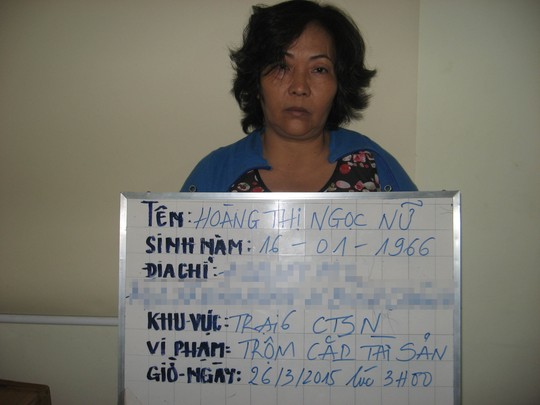 TÊN: HOÀNG THỊ NGỌC NỮ
SINH NĂM: 16 - 01 - 1966
ĐỊA CHỈ:
KHU VỰC: TRẠI 6 CTSN
VI PHẠM: TRỘM CẮP TÀI SẢN
GIỜ-NGÀY: 26/3/2015 lúc 3H00